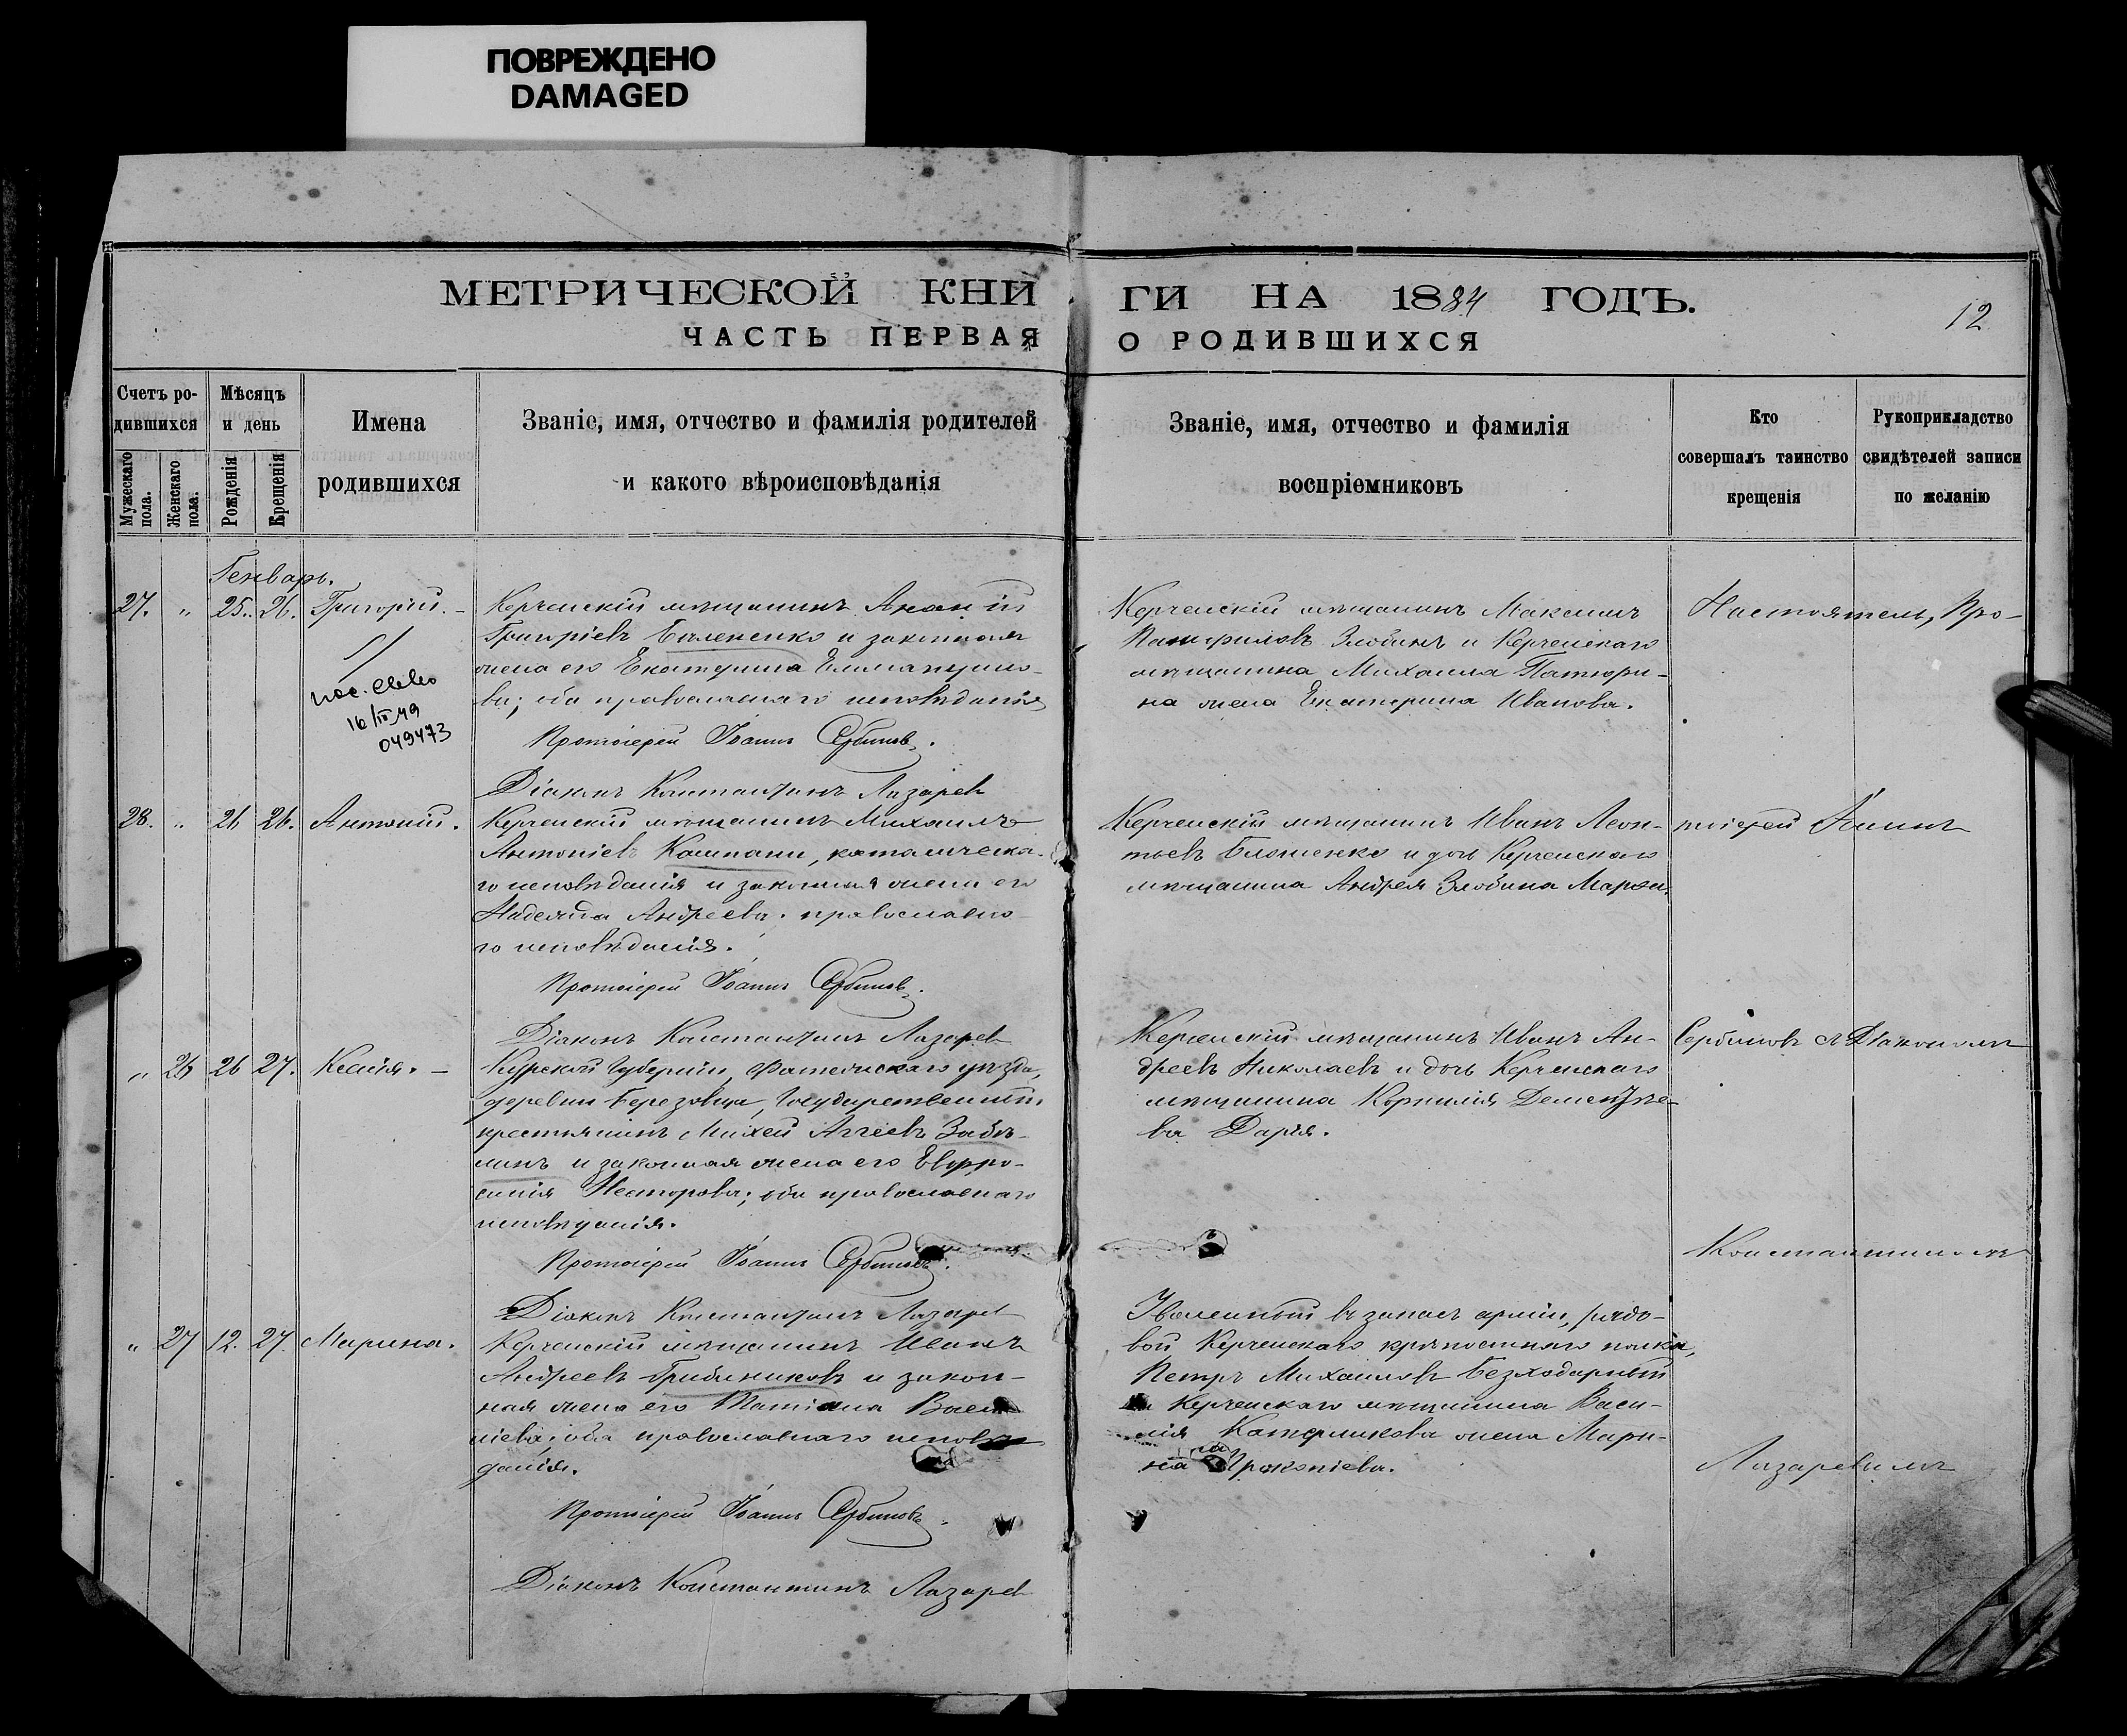 ПОВРЕЖДЕНО
DAMAGED
МЕТРИЧЕСКОЙ КНИ
ГИ НА 1884 ГОДЪ.
12
ЧАСТЬ ПЕРВАЯ
О РОДИВШИХСЯ
Счетъ ро-
дившихся
Мужескаго пола.
Женскаго пола.
Мѣсяцъ
и день
Рожденія
Крещенія
Имена
родившихся
Званіе, имя, отчество и фамилія родителей
и какого вѣроисповѣданія
Званіе, имя, отчество и фамилія
воспріемниковъ
Кто
совершалъ таинство
крещенія
Рукоприкладство
свидѣтелей записи
по желанію
Генварь.
27. " 25. 26. Григорій.
16/IV 49
049473
Керченскій мѣщанинъ Ананій
Григоріевъ Балененко и законная
жена его Екатерина Еммануило-
ва; оба православнаго исповѣданія
Протоіерей Іоаннъ Сербиновъ.
Діаконъ Константинъ Лазарев
Керченскій мѣщанинъ Максимъ
Памфиловъ Злобинъ и Керченскаго
мѣщанина Михаила Патюри-
на жена Екатерина Иванова.
Настоятель, Про-
28. " 26 26. Антоній.
Керченскій мѣщанинъ Михаилъ
Антоніевъ Компани, католическа-
го исповѣданія и законная жена его
Надежда Андреева. православна-
го исповѣданія.
Протоіерей Іоаннъ Сербиновъ.
Діаконъ Константинъ Лазарев
Керченскій мѣщанинъ Иванъ Леон-
тьевъ Блошенко и дочь Керченскаго
мѣщанина Андрея Злобина Марѳа.
тоіерей Іоаннъ
" 26 26 27. Ксенія.
Курской Губерніи, Фатежскаго уѣзда,
деревни Березовца, Государственный
крестьянинъ Михей Аггеевъ Забѣ-
линъ и законная жена его Евфро-
синія Несторова; оба православнаго
исповѣданія.
Протоіерей Іоаннъ Сербиновъ.
Діаконъ Константинъ Лазарев
Керченскій мѣщанинъ Иванъ Ан-
дреевъ Николаевъ и дочь Керченскаго
мѣщанина Корнилія Дементье-
ва Дарія.
Сербиновъ съ Діакономъ
Константиномъ
" 27 12. 27. Марина.
Керченскій мѣщанинъ Иванъ
Андреевъ Грибиниковъ и закон-
ная жена его Татіана Васи
ліева; оба православнаго исповѣ
данія.
Протоіерей Іоаннъ Сербиновъ.
Діаконъ Константинъ Лазарев
Уволенный въ запасъ арміи, рядо-
вой Керченскаго крѣпостнаго полка,
Петръ Михаиловъ Безходарный
и Керченскаго мѣщанина Васи-
лія Катерликова жена Мари-
на Прокопіева.
Лазаревымъ